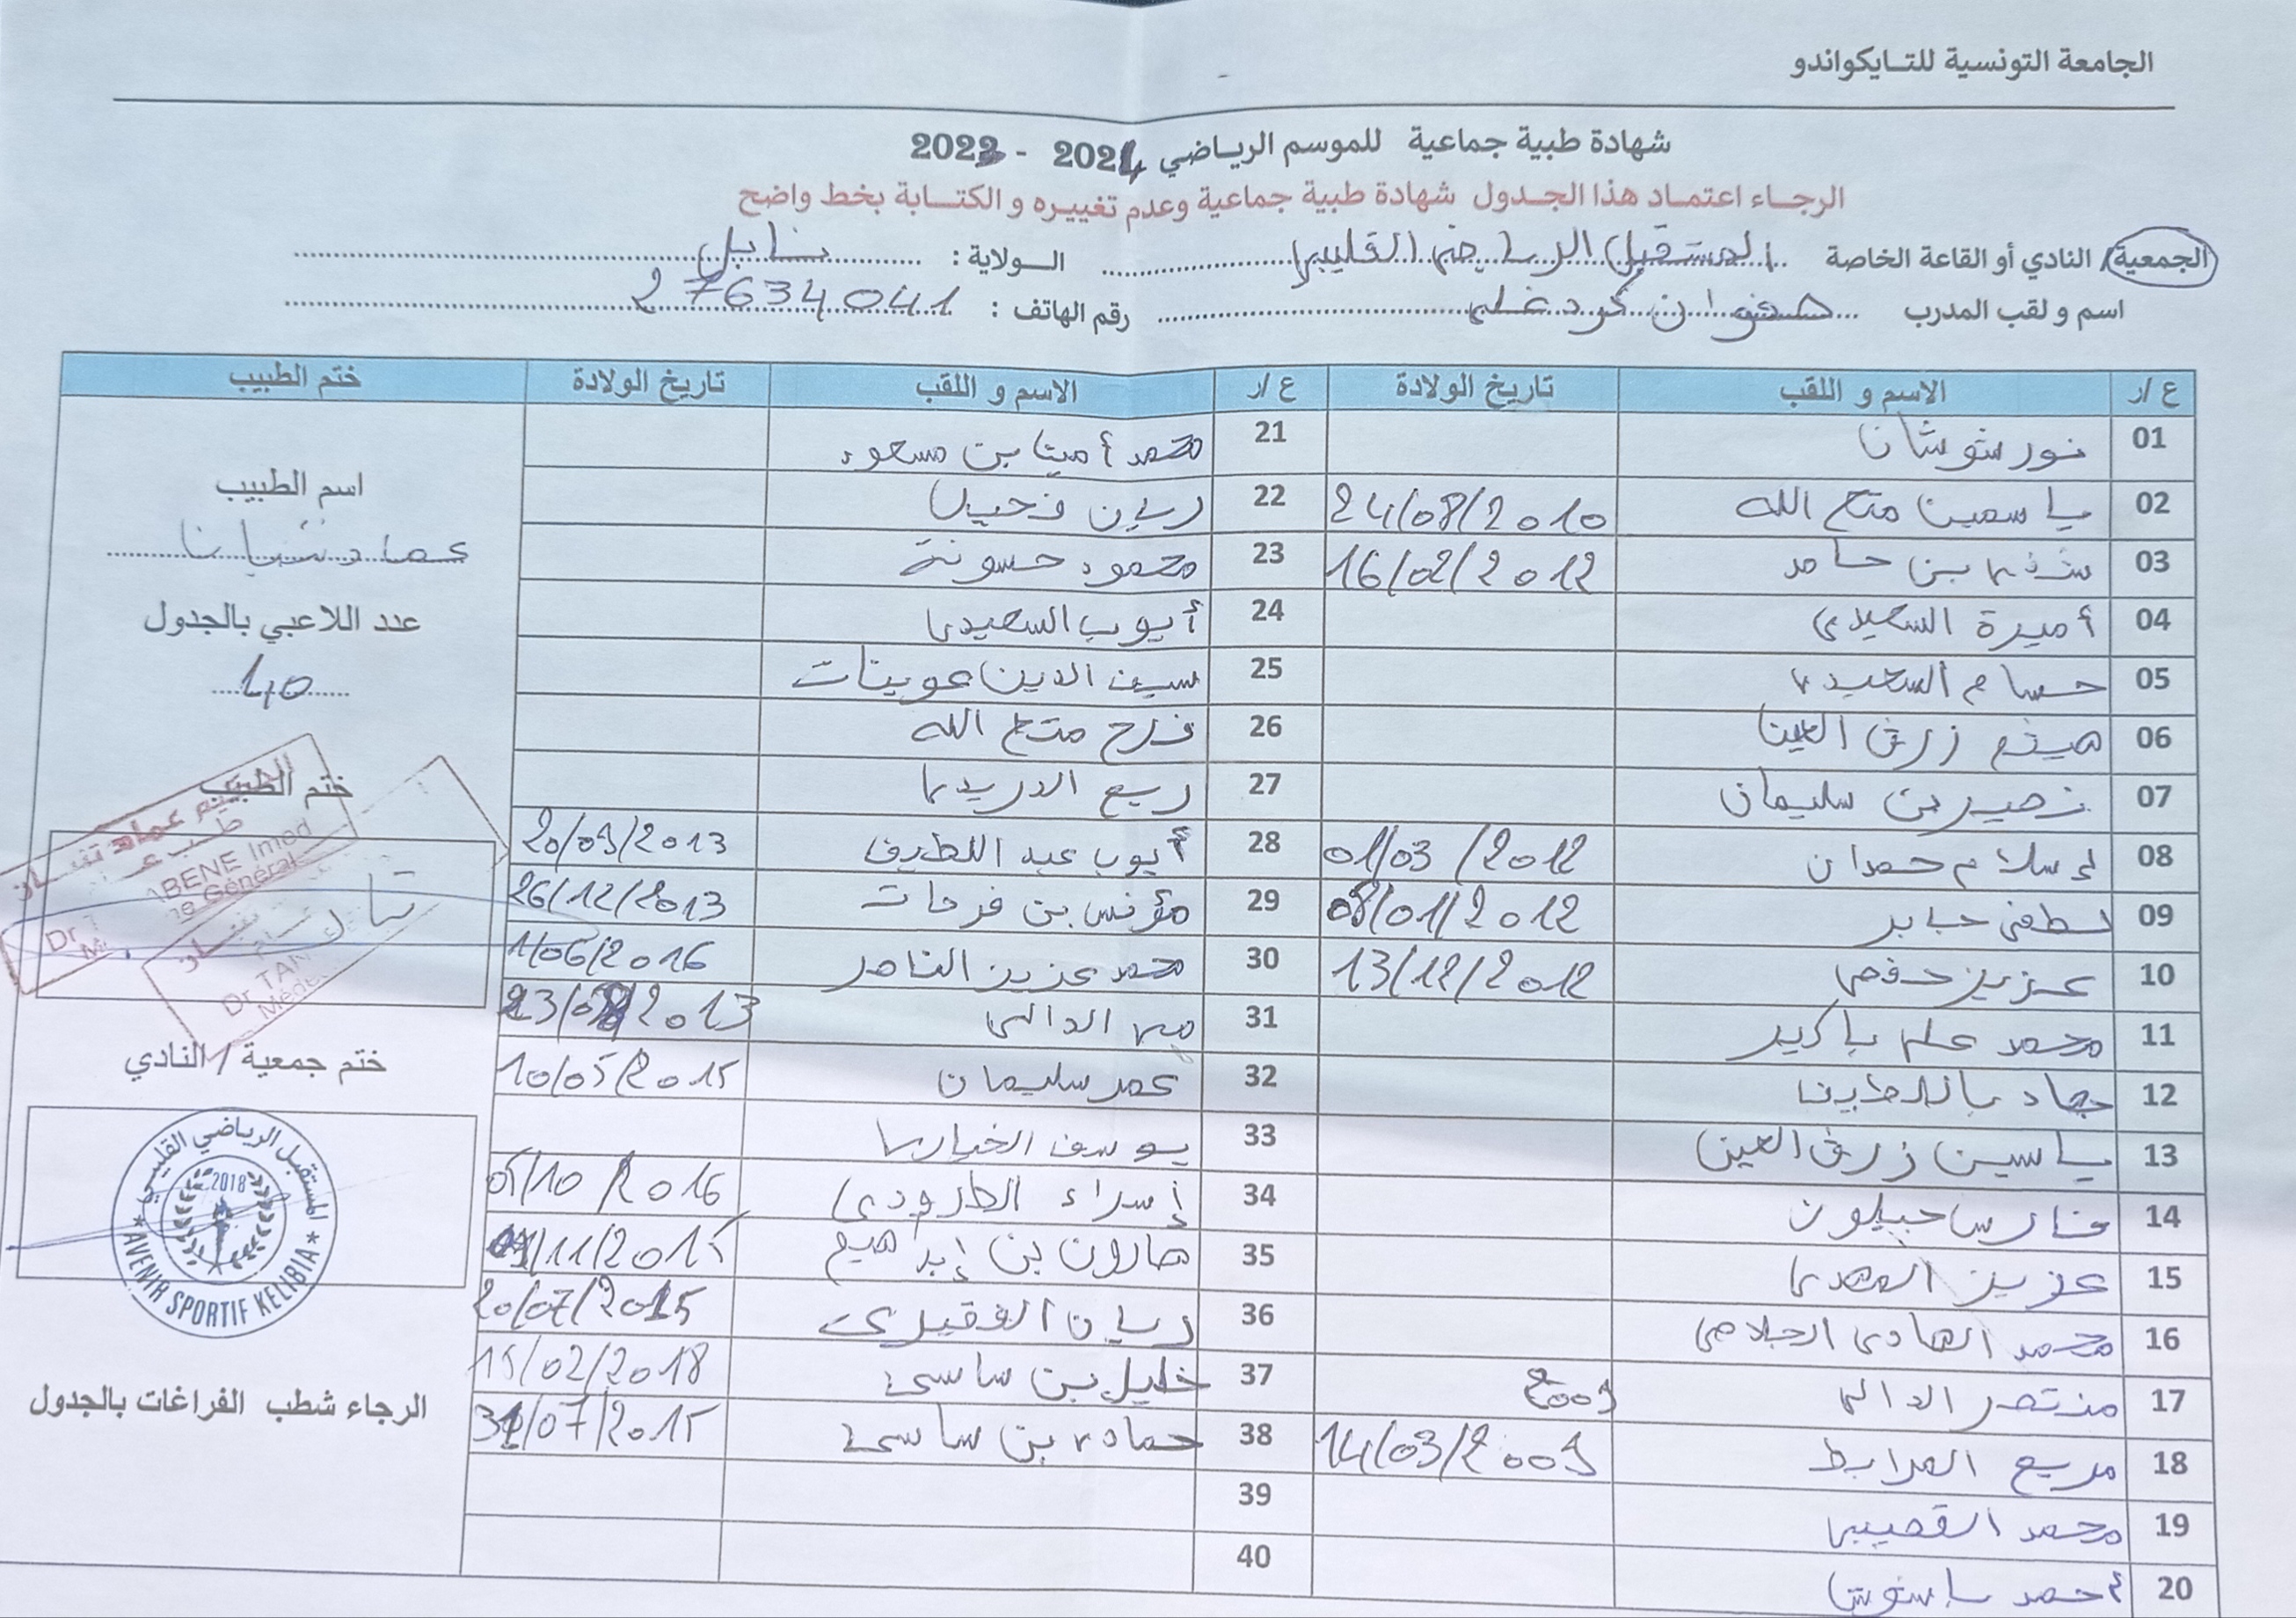 الجامعة التونسية للتايكواندو
شهادة طبية جماعية للموسم الرياضي 2024 - 2023
الرجاء اعتماد هذا الجدول شهادة طبية جماعية وعدم تغييره و الكتابة بخط واضح
الجمعية/ النادي أو القاعة الخاصة المستقبل الرياضي القليبي الولاية : نابل
اسم و لقب المدرب صفوان كردغلي رقم الهاتف : 27634041
ع /ر الاسم و اللقب تاريخ الولادة ع /ر الاسم و اللقب تاريخ الولادة ختم الطبيب
01 نور شوشان
02 ياسمين متع الله 24/08/2010
03 بن حامد 16/02/2012
04 أميرة السعيدي
05 حسام السعيدي
06 هيثم زرق العين
07 زهير بن سليمان
08 إسلام حمدان 01/03/2012
09 لطفي جابر 08/01/2012
10 عزيز حفصي 13/12/2012
11 محمد علي باكير
12 جهاد
13 ياسين زرق العين
14 فارس
15 عزيز المهدي
16 محمد الهادي الجلاصي
17 منتصر الدالي 2009
18 مريم المرابط 14/03/2009
19 محمد القصيبي
20 أحمد
21 محمد أمين بن مسعود
22 ريان
23 محمود حسونة
24 أيوب السعيدي
25 سيف الدين عوينات
26 فرح متع الله
27 ربيع الدريدي
28 أيوب عبد اللطيف 20/09/2013
29 مؤنس بن فرحات 26/12/2013
30 محمد عزيز الناصر 1/06/2016
31 الدالي 23/08/2013
32 عمر سليمان 10/05/2015
33 يوسف الخياري
34 إسراء الطرودي 05/10/2016
35 هارون بن إبراهيم 01/11/2015
36 ريان الفقيري 20/07/2015
37 خليل بن ساسي 15/02/2018
38 حمادي بن ساسي 31/07/2015
39
40
اسم الطبيب
عماد تبان
عدد اللاعبي بالجدول
40
ختم الطبيب
ختم جمعية / النادي
المستقبل الرياضي القليبي
2018
AVENIR SPORTIF KELIBIA
الرجاء شطب الفراغات بالجدول